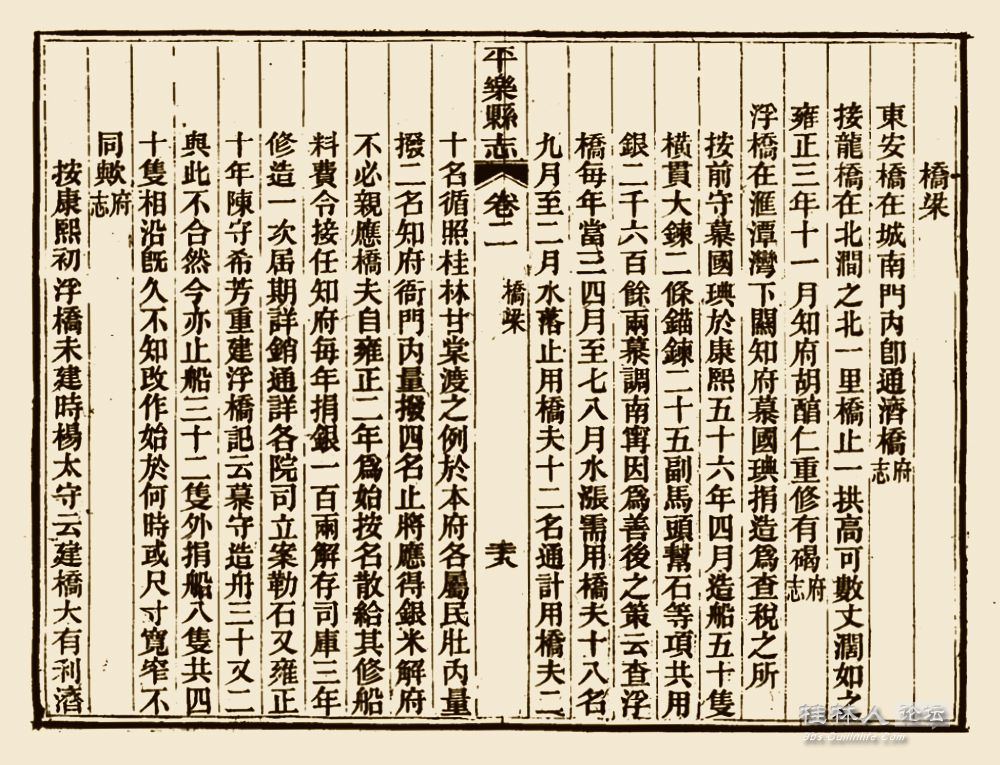 橋梁
東安橋在城南門內卽通濟橋府志
接龍橋在北澗之北一里橋止一拱高可數丈濶如之
雍正三年十一月知府胡醕仁重修有碣府志
浮橋在滙潭灣下關知府慕國琠捐造爲查稅之所
按前守慕國琠於康熙五十六年四月造船五十隻
橫貫大鍊二條錨鍊二十五副馬頭幫石等項共用
銀二千六百餘兩慕調南甯因爲善後之策云查浮
橋每年當三四月至七八月水漲需用橋夫十八名
九月至二月水落止用橋夫十二名通計用橋夫二
平樂縣志
卷二
橋梁
十名循照桂林甘棠渡之例於本府各屬民壯內量
撥二名知府衙門內量撥四名止將應得銀米解府
不必親應橋夫自雍正二年爲始按名散給其修船
料費令接任知府每年捐銀一百兩解存司庫三年
修造一次屆期詳銷通詳各院司立案勒石又雍正
十年陳守希芳重建浮橋記云慕守造舟三十又二
與此不合然今亦止船三十二隻外捐船八隻共四
十隻相沿旣久不知改作始於何時或尺寸寬窄不
同歟府志
按康熙初浮橋未建時楊太守云建橋大有利濟
桂林人 论坛